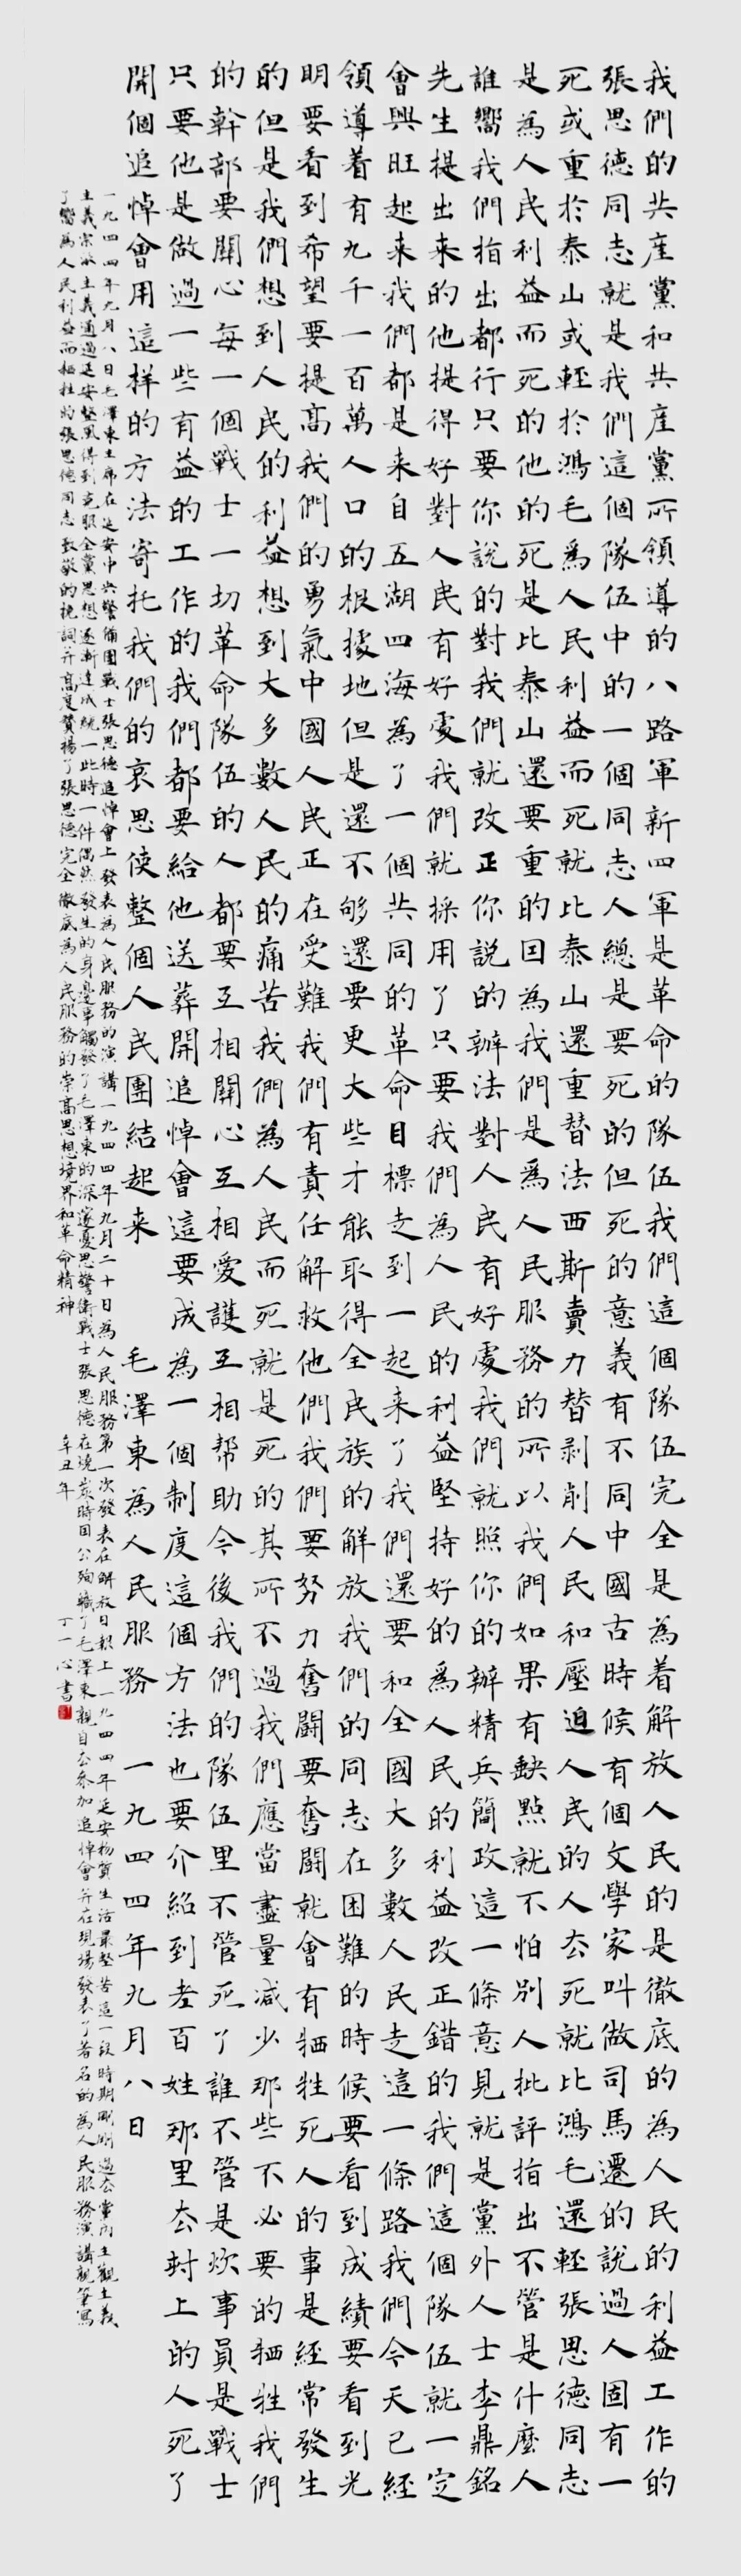 我們的共產黨和共產黨所領導的八路軍新四軍是革命的隊伍我們這個隊伍完全是為着解放人民的是徹底的為人民的利益工作的
張思德同志就是我們這個隊伍中的一個同志人總是要死的但死的意義有不同中國古時候有個文學家叫做司馬遷的說過人固有一
死或重於泰山或輕於鴻毛爲人民利益而死就比泰山還重替法西斯賣力替剥削人民和壓迫人民的人去死就比鴻毛還輕張思德同志
是為人民利益而死的他的死是比泰山還要重的因為我們是爲人民服務的所以我們如果有缺點就不怕別人批評指出不管是什麼人
誰嚮我們指出都行只要你說的對我們就改正你說的辦法對人民有好處我們就照你的辦精兵簡政這一條意見就是黨外人士李鼎銘
先生提出来的他提得好對人民有好處我們就採用了只要我們為人民的利益堅持好的爲人民的利益改正錯的我們這個隊伍就一定
會興旺起来我們都是来自五湖四海為了一個共同的革命目標走到一起来了我們還要和全國大多數人民走這一條路我們今天已經
領導着有九千一百萬人口的根據地但是還不够還要更大些才能取得全民族的解放我們的同志在困難的時候要看到成績要看到光
明要看到希望要提高我們的勇氣中國人民正在受難我們有責任解救他們我們要努力奮鬪要奮鬪就會有牺牲死人的事是經常發生
的但是我們想到人民的利益想到大多數人民的痛苦我們為人民而死就是死的其所不過我們應當盡量减少那些不必要的牺牲我們
的幹部要關心每一個戰士一切革命隊伍的人都要互相關心互相愛護互相帮助今後我們的隊伍里不管死了誰不管是炊事員是戰士
只要他是做過一些有益的工作的我們都要給他送葬開追悼會這要成為一個制度這個方法也要介紹到老百姓那里去村上的人死了
開個追悼會用這样的方法寄托我們的哀思使整個人民團結起来 毛澤東為人民服務 一九四四年九月八日
一九四四年九月八日毛澤東主席在延安中央警備團戰士張思德追悼會上發表為人民服務的演講一九四四年九月二十日為人民服務第一次發表在解放日報上一九四四年延安物質生活最堅苦這一段時期剛剛過去黨內主觀主義
主義宗派主義通過延安整風得到克服全黨思想逐漸達成統一此時一件偶然發生的身邊事觸發了毛澤東的深邃憂思警衛戰士張思德在燒炭時因公殉職了毛澤東親自去參加追悼會并在現場發表了著名的為人民服務演講親筆寫
了嚮為人民利益而牺牲的張思德同志致敬的挽詞并高度贊揚了張思德完全徹底為人民服務的崇高思想境界和革命精神 辛丑年 丁一心書